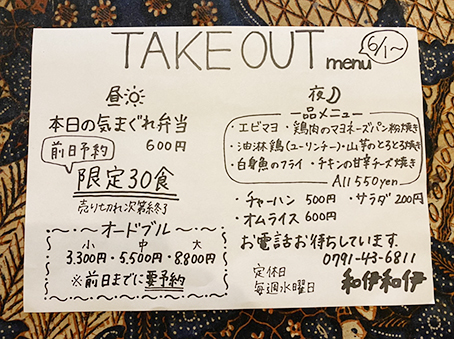 TAKE OUT menu
6/1〜
昼
本日の気まぐれ弁当
600円
前日予約
限定30食
売り切れ次第終了
オードブル
小 中 大
3.300円・5.500円・8800円
※前日までに要予約
夜
一品メニュー
・エビマヨ ・鶏肉のマヨネーズパン粉焼き
・油淋鶏(ユーリンチー)・山芋のとろとろ焼き
・白身魚のフライ ・チキンの甘辛チーズ焼き
All 550yen
・チャーハン 500円 ・サラダ 200円
・オムライス 600円
お電話お待ちしています.
0791-43-6811
定休日
毎週水曜日
和伊和伊